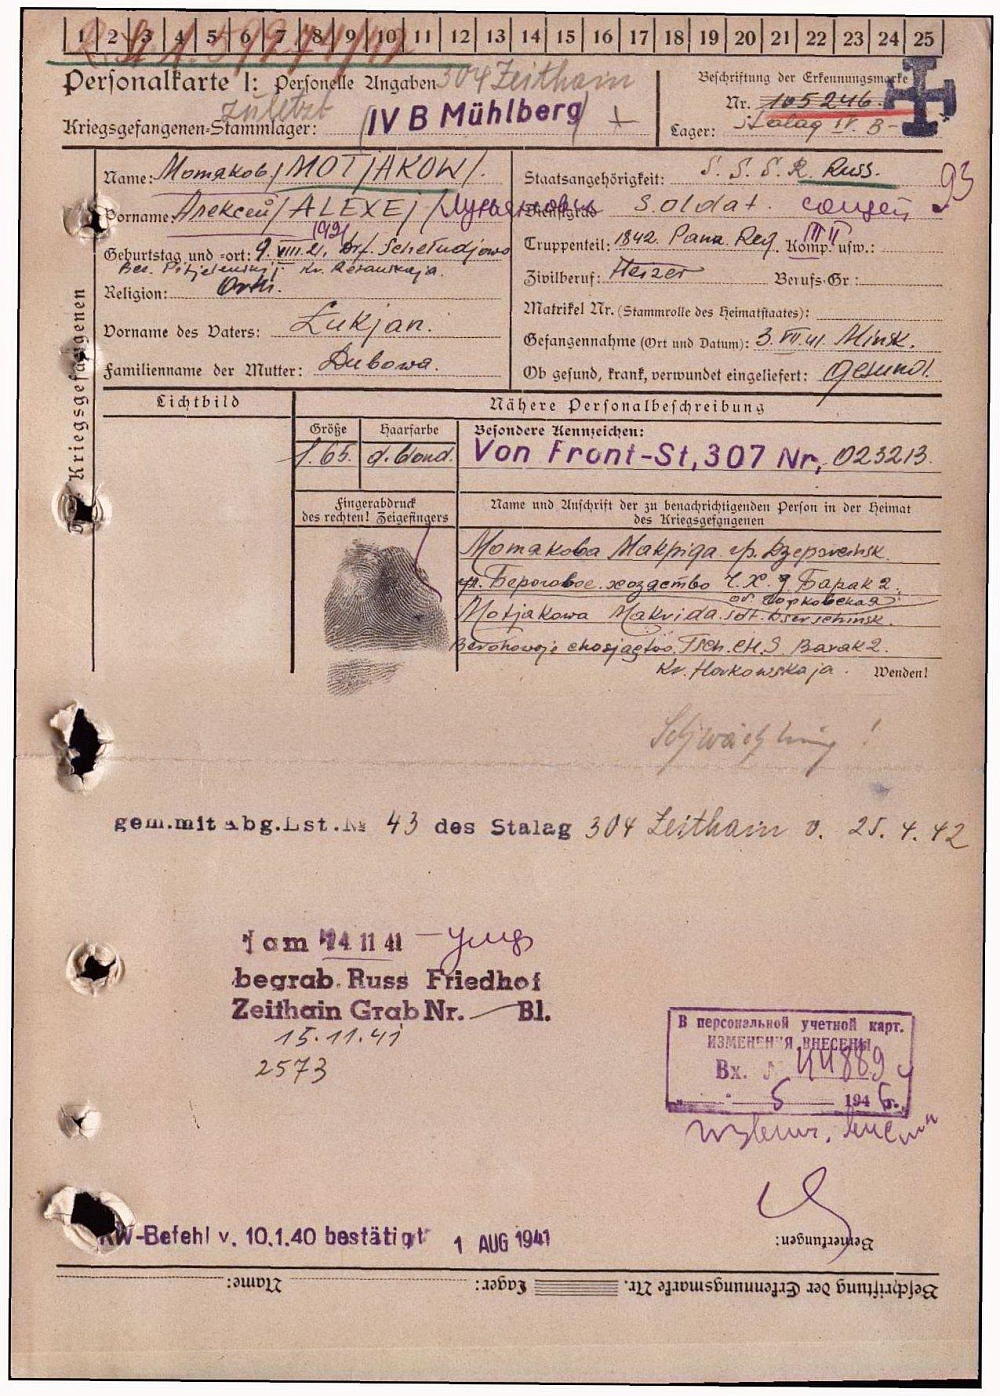 1 2 3 4 5 6 7 8 9 10 11 12 13 14 15 16 17 18 19 20 21 22 23 24 25
Personalkarte I: Personelle Angaben 304 Zeithain
zuletzt
Kriegsgefangenen-Stammlager: IV B Mühlberg +
Beschriftung der Erkennungsmarke
Nr. 105246.
Lager: Stalag IV B
des Kriegsgefangenen
Name: Мотяков / MOTJAKOW /.
Vorname: Алексей / ALEXEJ / Лукьянович
1921
Geburtstag und -ort: 9. VIII. 21,
Religion: Orth.
Vorname des Vaters: Lukjan.
Familienname der Mutter: Dubowa.
Staatsangehörigkeit: S. S. S. R. Russ. 93
Dienstgrad Soldat
Truppenteil: 1842. Panz. Reg. Komp. usw.:
Zivilberuf: Heizer Berufs-Gr.:
Matrikel Nr. (Stammrolle des Heimatstaates):
Gefangennahme (Ort und Datum): 3. VII. 41. Minsk.
Ob gesund, krank, verwundet eingeliefert: gesund.
Lichtbild
Nähere Personalbeschreibung
Größe
1.65
Haarfarbe
d. blond.
Besondere Kennzeichen:
Von Front-St, 307 Nr, 023213.
Fingerabdruck
des rechten! Zeigefingers
Name und Anschrift der zu benachrichtigenden Person in der Heimat
des Kriegsgefangenen
Мотякова Макрида гор. Дзержинск.
Береговое. хозяство Ч. Х. З Барак 2.
об. Горковская
Motjakowa Makrida. Sdt. Dserschinsk.
Berohowoje chosjagtwo. Tsch. CH. S Barak 2.
Kr. Horkowskaja. Wenden!
gem. mit Abg. Lst. № 43 des Stalag 304 Zeithain v. 25. 4. 42
† am 14 11 41
begrab. Russ Friedhof
Zeithain Grab Nr. — Bl.
15.11.41
2573
В персональной учетной карт.
ИЗМЕНЕНИЯ ВНЕСЕНЫ
Вх. № 44889
" " 5 1946 г.
KW-Befehl v. 10.1.40 bestätigt 1 AUG 1941
Bemerkungen:
Beschriftung der Erkennungsmarke Nr. Lager: Name: